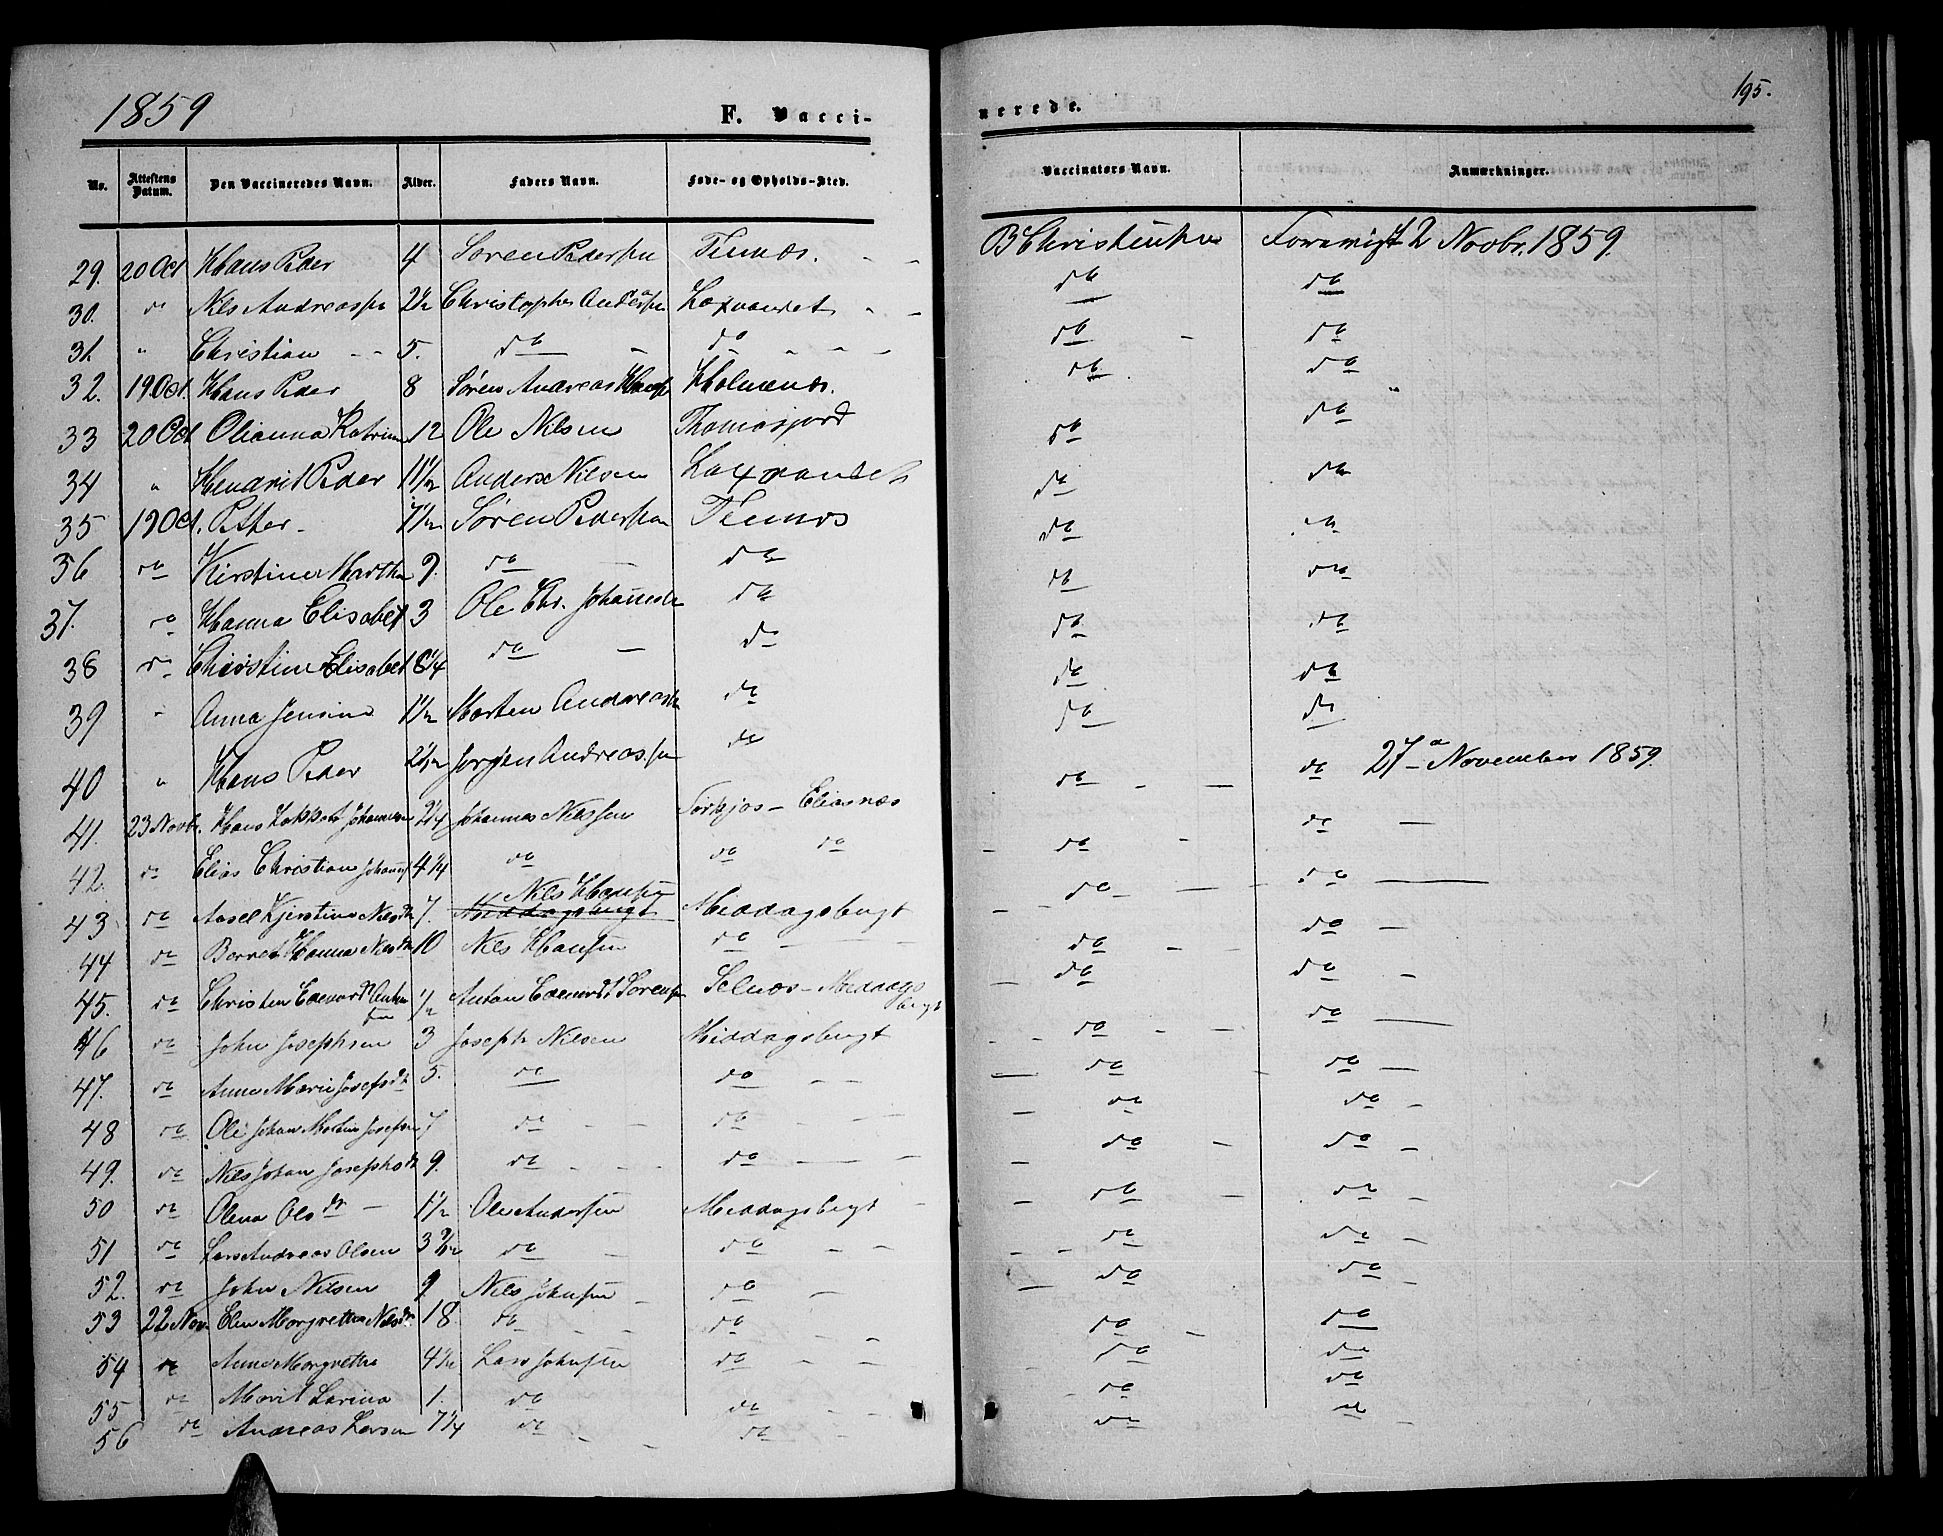 1859 F. Vacci- nerede. 195.
No. Attestens Datum. Den Vaccineredes Navn. Alder. Faders Navn. Føde- og Opholds-Sted. Vaccinators Navn. Anmærkninger.
29. 20 Oct Hans Peder 4 Søren Pedersen Forevist 2 Novbr. 1859.
30. do Nils Andreassen 2 1/2 Christopher Laxvandet do do
31. " Christian 5. do do do do
32. 19 Oct. Hans Peder 8 Søren Andreas Holmenæs. do do
33 20 Oct Olianna 12 Ole Nilsen Thomasjord do do
34 " Hendrik Peder 11 1/2 Anders Nilsen Laxvandet do do
35 19 Oct. Petter 7 1/2 Søren Pedersen do do
36 do Kirstine Martha 9. do do do do
37. do Hanna Elisabet 3 Ole Chr. Johannesen do do do
38 do Christine Elisabet 8 1/4 do do do do
39 " Anna Jensine 1 1/2 Morten Andreassen do do do
40 " Hans Peder Jørgen Andreassen do do do 27de November 1859.
41. 23 Novbr. Hans 2 1/4 Johannes Nilssen Eliasnæs do do
42. do Elias Christian 4 1/4 do do do do do
43 do Kjerstine Nilsdtr 7. Middagsbugt Nils Hansen Middagsbugt do do
44 do Hanna Nilsdtr 10 Nils Hansen do do do
45. do Christen Edevardt Antonsen 1/2 Anton Edevardt Sørensen Selnæs - Middagsbugt do do
46 do John Josephsen 3 Joseph Nilsen Middagsbugt do do
47. do Anne Marie Josefsdtr 5. do do do do
48 do Ole Johan Martin Josefsen 7 do do do do
49. do Nils Johan 9. do do do do
50 do Olena Olsdtr 1 1/2 Ole Andersen Middagsbugt do do
51 do Lars Andreas Olsen do do do do
52. do John Nilsen 9 Nils Johnsen do do do
53 22 Nov. Elen Margrethe Nilsdtr 18. do do do do
54 do Anne Margrethe 4 1/2 Lars Johnsen do do do
55 do Marit Larina 1. do do do do
56 do Andreas Larsen 7 1/4 do do do do